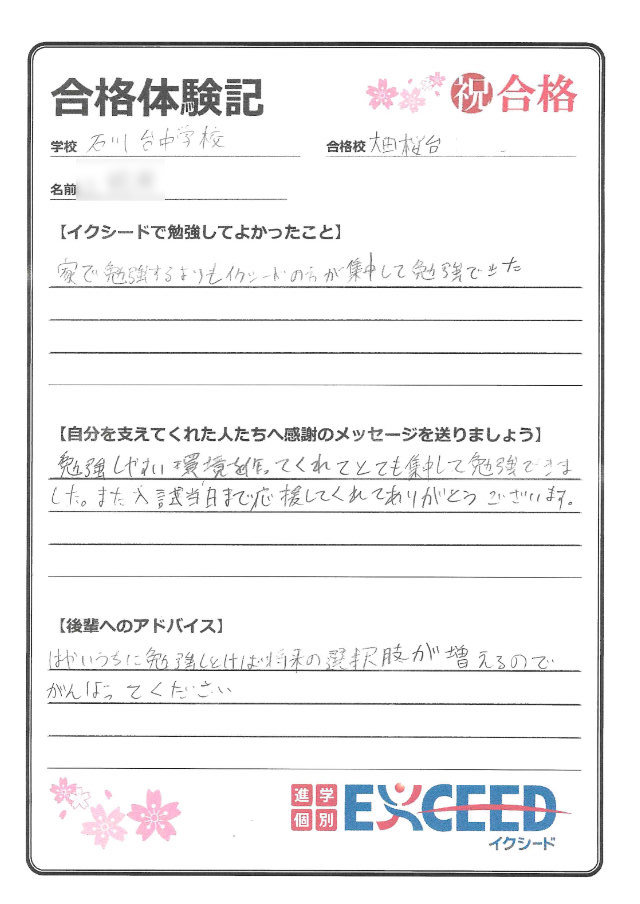 合格体験記
祝合格
学校 石川台中学校
合格校 大田桜台
名前
【イクシードで勉強してよかったこと】
家で勉強するよりもイクシードの方が集中して勉強できた
【自分を支えてくれた人たちへ感謝のメッセージを送りましょう】
勉強しやすい環境を作ってくれてとても集中して勉強できま
した。また入試当日まで応援してくれてありがとうございます。
【後輩へのアドバイス】
はやいうちに勉強しとけば将来の選択肢が増えるので
がんばってください
進学
個別
EXCEED
イクシード